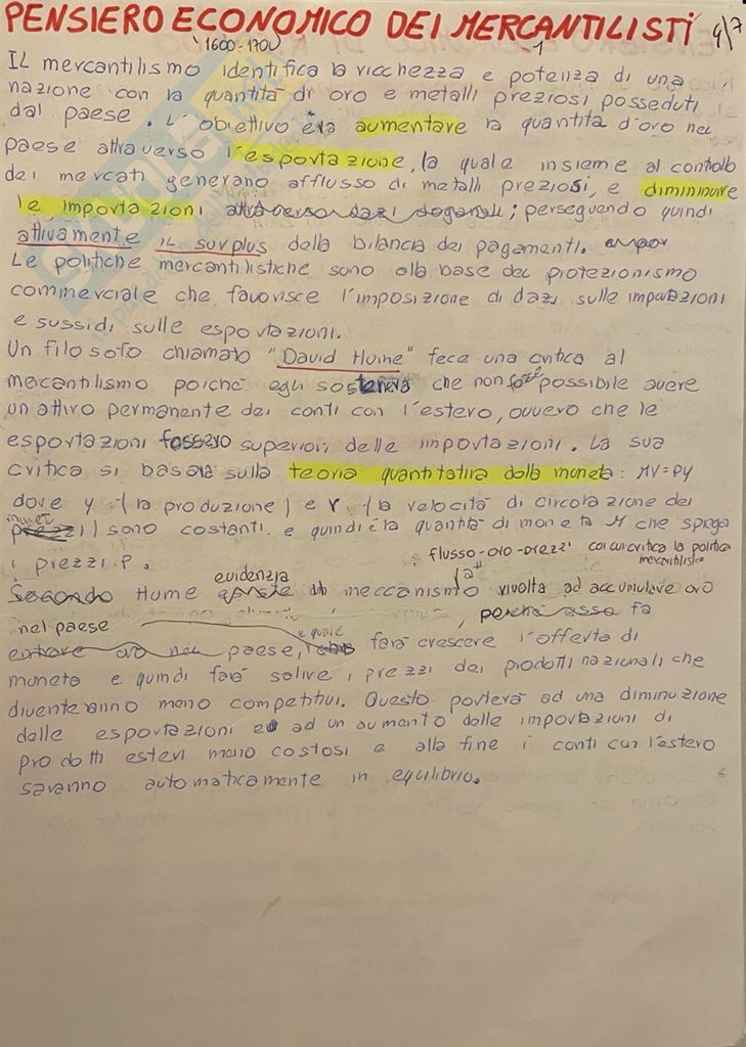 PENSIERO ECONOMICO DEI MERCANTILISTI 4/7
(1600-1700) 1
IL mercantilismo identifica la ricchezza e potenza di una
nazione con la quantità di oro e metalli preziosi posseduti
dal paese. L'obiettivo era aumentare la quantità d'oro nel
paese attraverso l'esportazione, la quale insieme al controllo
dei mercati generano afflusso di metalli preziosi, e diminiuire
le importazioni attraverso dazi doganali; perseguendo quindi
attivamente il surplus della bilancia dei pagamenti.
Le politiche mercantilistiche sono alla base del protezionismo
commerciale che favorisce l'imposizione di dazi sulle importazioni
e sussidi sulle esportazioni.
Un filosofo chiamato "David Hume" fece una critica al
mercantilismo poiché egli sosteneva che non fosse possibile avere
un attivo permanente dei conti con l'estero, ovvero che le
esportazioni fossero superiori delle importazioni. La sua
critica si basava sulla teoria quantitativa della moneta: MV=PY
dove y (la produzione) e V (la velocità di circolazione dei
prezzi) sono costanti e quindi è la quantità di moneta M che spiega
i prezzi P.
flusso-oro-prezzi con cui critica la politica
mercantilistica
evidenzia
Secondo Hume meccanismo rivolta ad accumulare oro
nel paese , perché essa fa
entrare oro nel paese, e quale farà crescere l'offerta di
moneta e quindi farà salire i prezzi dei prodotti nazionali che
diventeranno meno competitivi. Questo porterà ad una diminuzione
delle esportazioni ed ad un aumento delle importazioni di
prodotti esteri meno costosi e alla fine i conti con l'estero
saranno automaticamente in equilibrio.